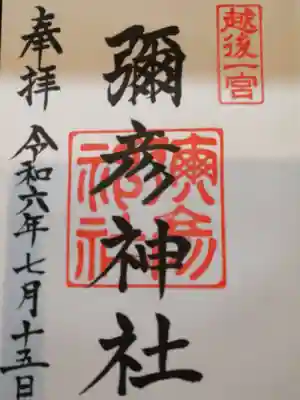 越後一宮
彌彦神社
奉拝
令和六年七月十五日